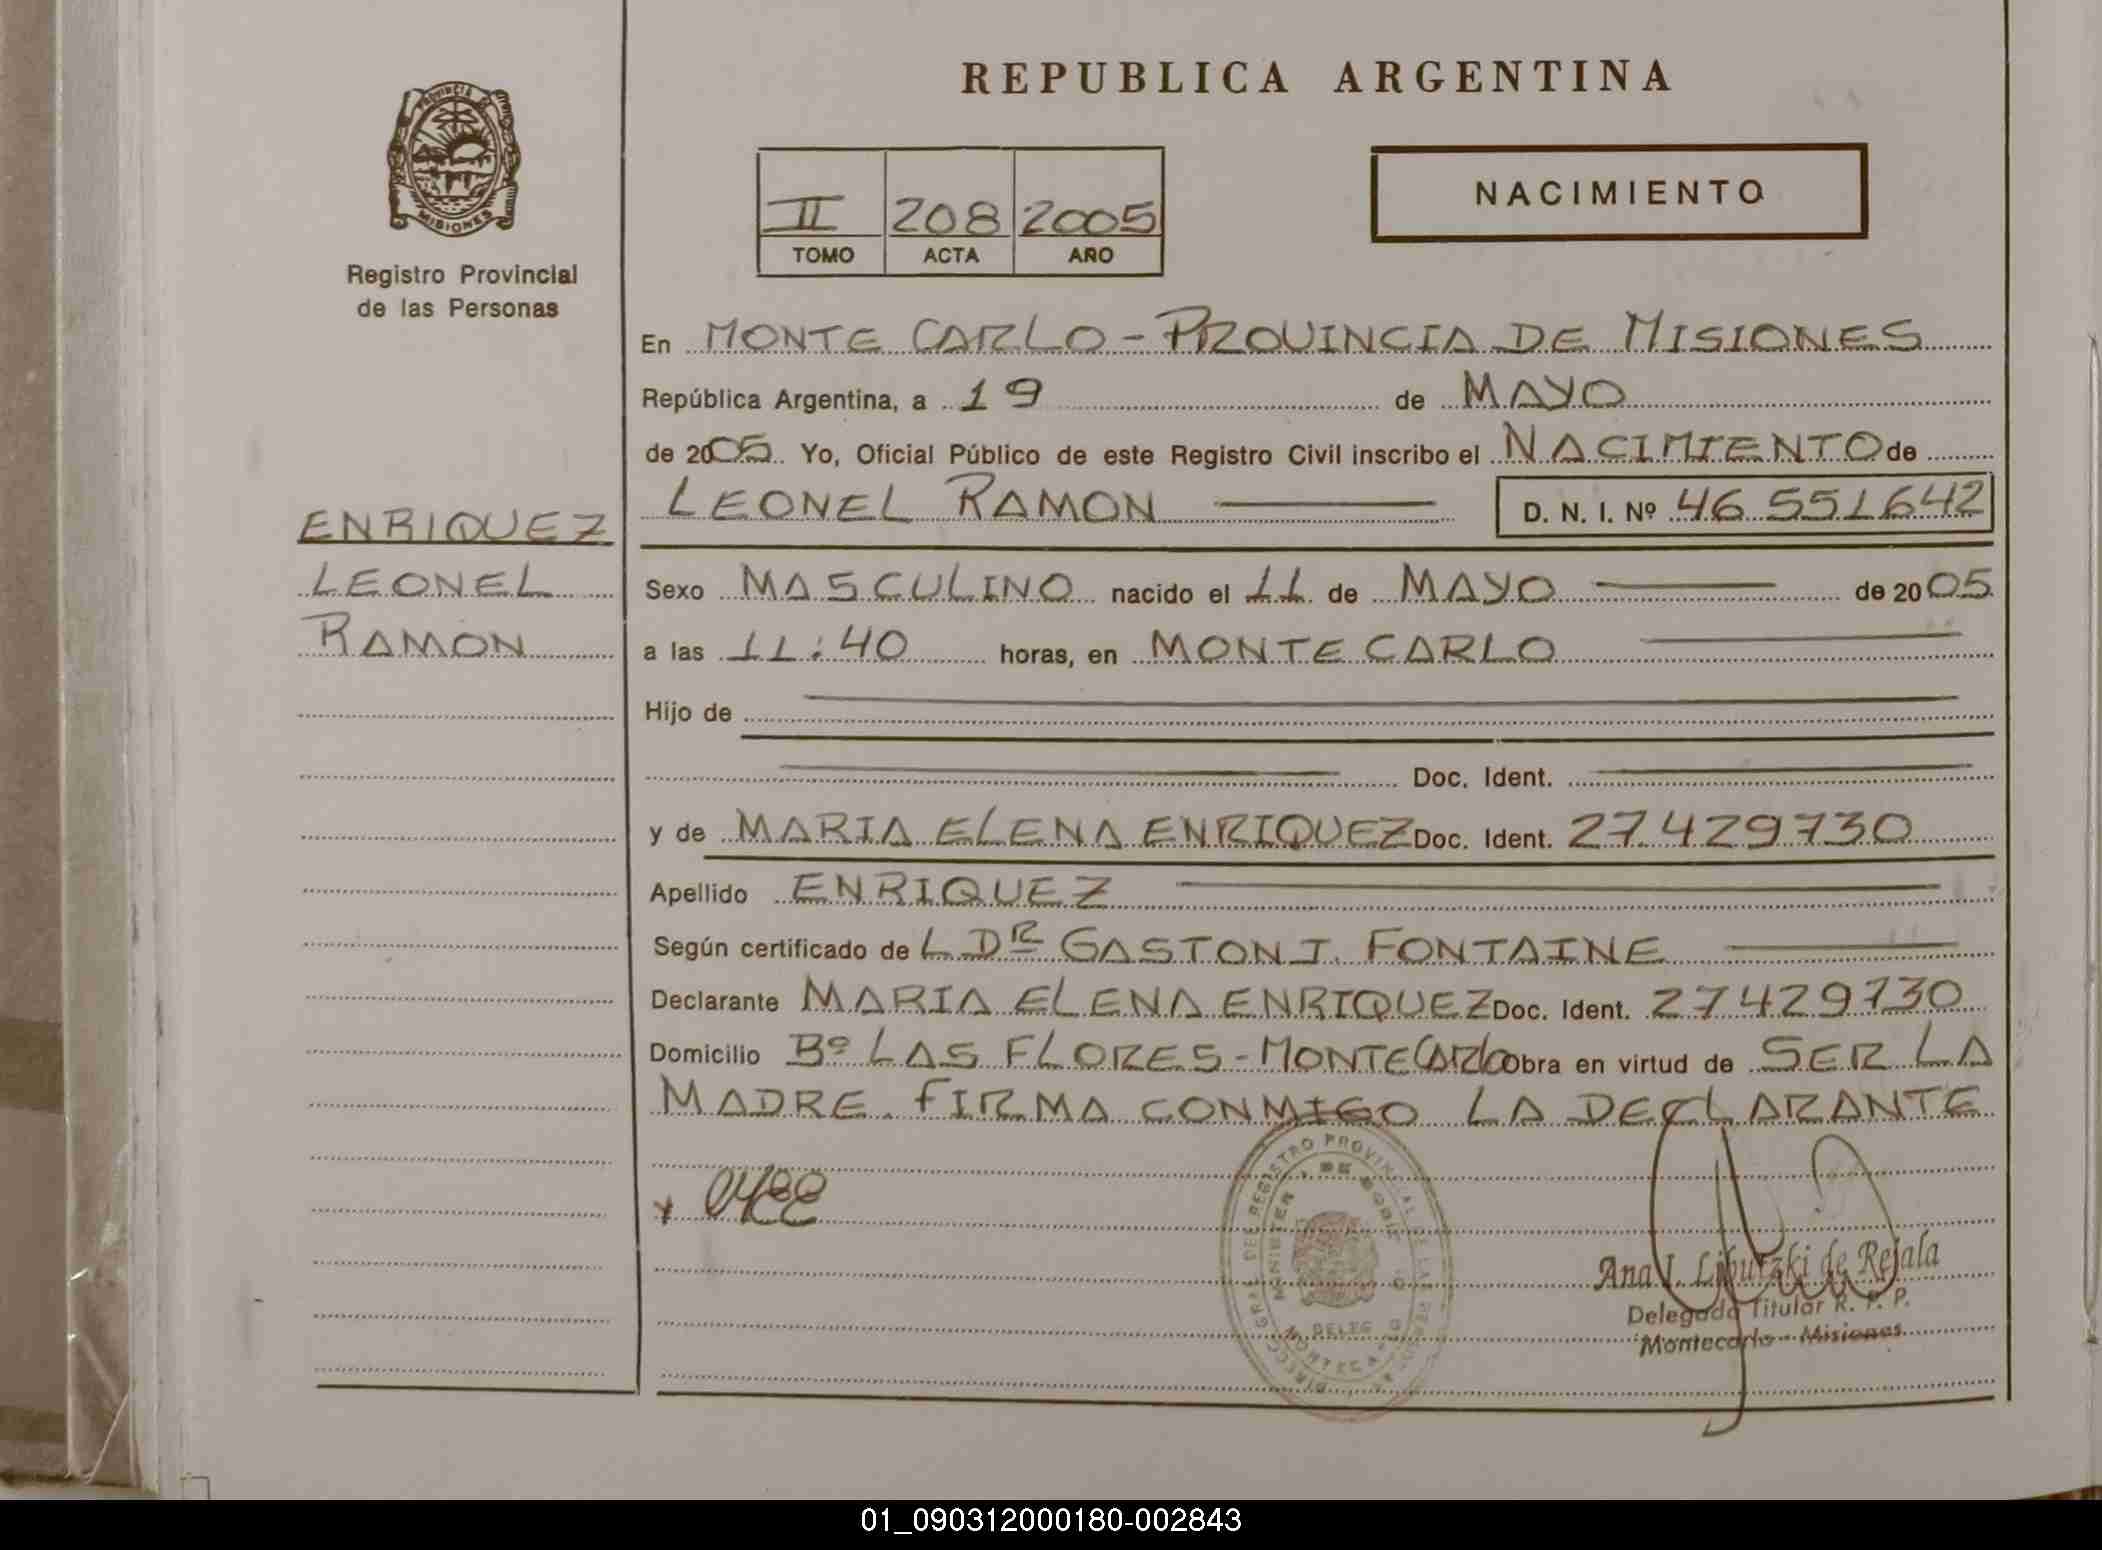 REPUBLICA ARGENTINA
PROVINCIA DE
MISIONES
Registro Provincial
de las Personas
II 208 2005
TOMO ACTA AÑO
NACIMIENTO
En MONTE CARLO - PROVINCIA DE MISIONES
República Argentina, a 19 de MAYO
de 2005 Yo, Oficial Público de este Registro Civil inscribo el NACIMIENTO de
LEONEL RAMON D. N. I. Nº 46 551642
ENRIQUEZ
LEONEL
RAMON
Sexo MASCULINO nacido el 11 de MAYO de 2005
a las 11:40 horas, en MONTE CARLO
Hijo de
Doc. Ident.
y de MARIA ELENA ENRIQUEZ Doc. Ident. 27429730
Apellido ENRIQUEZ
Según certificado de L DR GASTON J. FONTAINE
Declarante MARIA ELENA ENRIQUEZ Doc. Ident. 27429730
Domicilio Bº LAS FLORES - MONTECARLO Obra en virtud de SER LA
MADRE. FIRMA CONMIGO LA DECLARANTE
Ana I. de Rejala
Delegada Titular R. P. P.
Montecarlo - Misiones
01_090312000180-002843